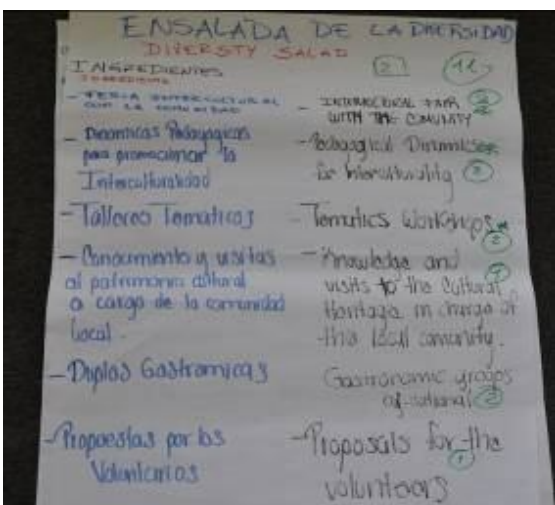 ENSALADA DE LA DIVERSIDAD
DIVERSTY SALAD
INGREDIENTES
2
- FERIA INTERCULTURAL
CON LA COMUNIDAD
- Dinamicas Pedagogicas
para promocionar la
Interculturalidad
- Talleres Tematicos
- Conocimiento y visitas
al patrimonio cultural
a cargo de la comunidad
local.
- Duplas Gastromicas
- Propuestas por los
Voluntarios
FAIR 2
WITH THE COMUNITY
- Pedagogical Dinamics
for interculturality 3
- Tematics Workshops
2
- Knowledge and
visits to the Cultural
Heritage in charge of
the local comunity.
Gastronomic groups
2
- Proposals for the
1
volunteers